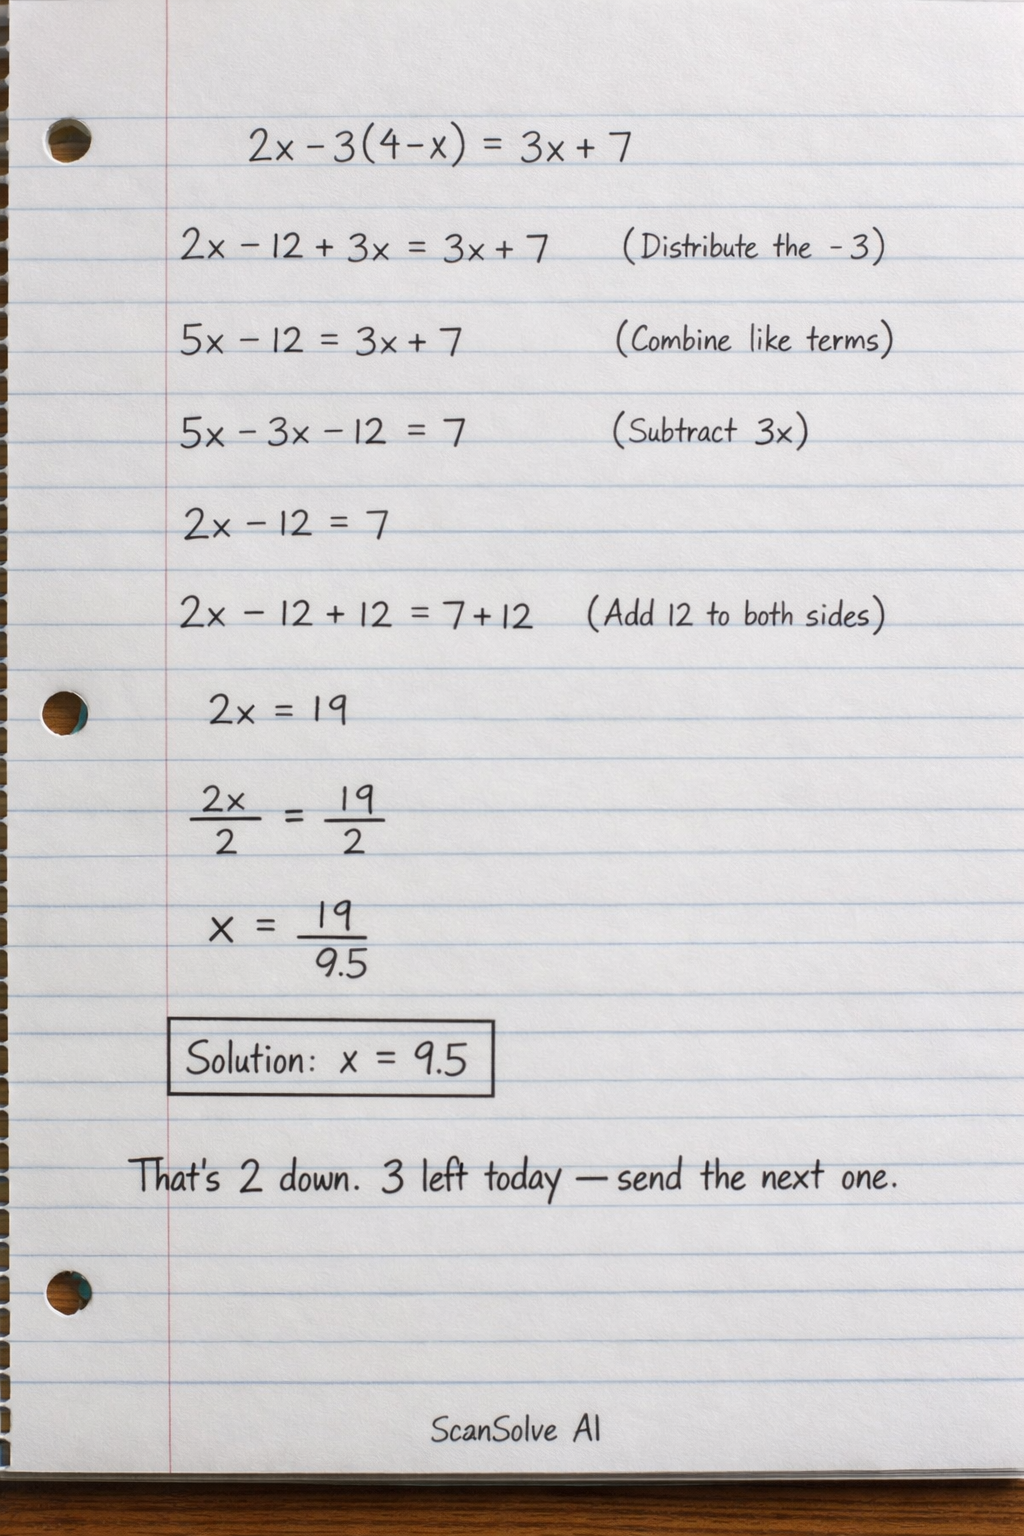 2x - 3(4-x) = 3x + 7
2x - 12 + 3x = 3x + 7 (Distribute the -3)
5x - 12 = 3x + 7 (Combine like terms)
5x - 3x - 12 = 7 (Subtract 3x)
2x - 12 = 7
2x - 12 + 12 = 7 + 12 (Add 12 to both sides)
2x = 19
2x/2 = 19/2
x = 19/9.5
Solution: x = 9.5
That's 2 down. 3 left today — send the next one.
ScanSolve AI